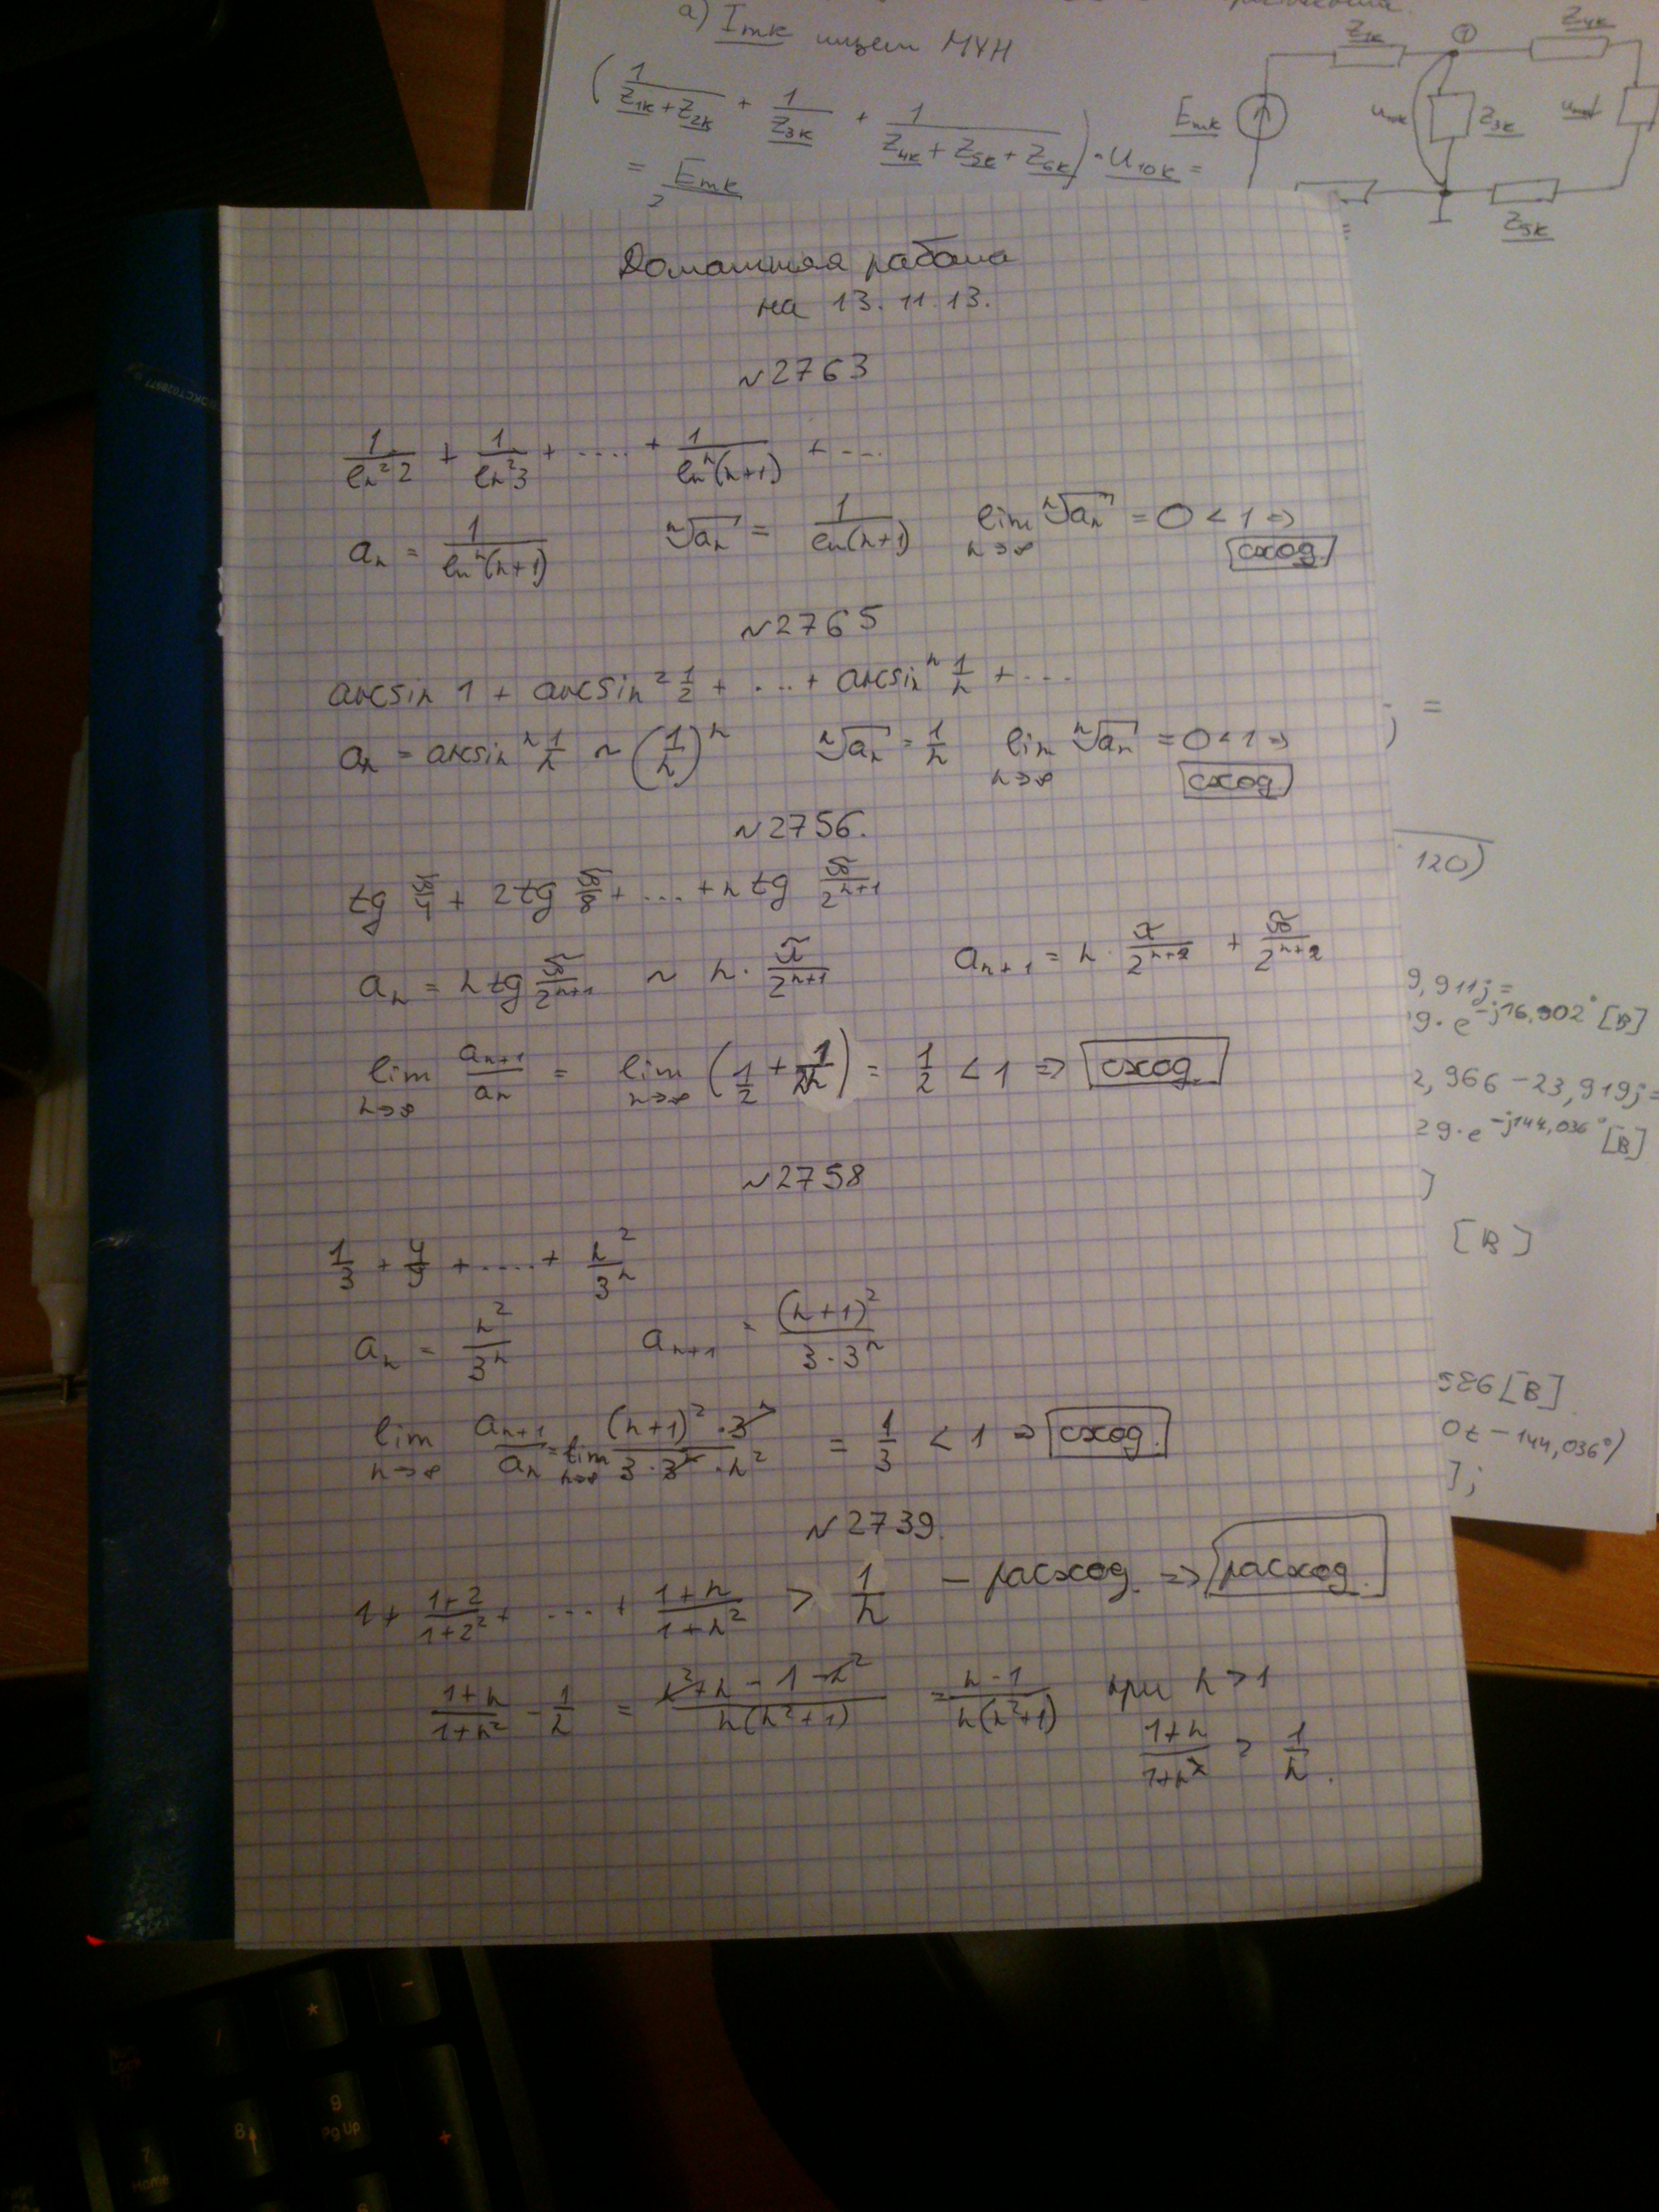 а) Imk ищем МУН
(1/(Z1k + Z2k) + 1/Z3k + 1/(Z4k + Z5k + Z6k)) · U10k =
= Emk
Z1k ① Z4k
Emk Umk Z3k
Z5k
Домашняя работа
на 13.11.13.
№2763
1/ln²2 + 1/ln²3 + .... + 1/lnⁿ(n+1) + ....
aₙ = 1/lnⁿ(n+1) ⁿ√aₙ = 1/ln(n+1) lim n→∞ ⁿ√aₙ = 0 < 1 ⇒
сход.
№2765
arcsin 1 + arcsin² 1/2 + ... + arcsinⁿ 1/n + ...
aₙ = arcsinⁿ 1/n ~ (1/n)ⁿ ⁿ√aₙ = 1/n lim n→∞ ⁿ√aₙ = 0 < 1 ⇒
сход.
№2756.
tg π/4 + 2tg π/8 + ... + n tg π/2ⁿ⁺¹
aₙ = n tg π/2ⁿ⁺¹ ~ n · π/2ⁿ⁺¹ aₙ₊₁ = n · π/2ⁿ⁺² + π/2ⁿ⁺²
lim n→∞ aₙ₊₁/aₙ = lim n→∞ (1/2 + 1/2n) = 1/2 < 1 ⇒ сход.
№2758
1/3 + 4/9 + .... + n²/3ⁿ
aₙ = n²/3ⁿ aₙ₊₁ = (n+1)²/(3·3ⁿ)
lim n→∞ aₙ₊₁/aₙ = lim n→∞ (n+1)²·3ⁿ/(3·3ⁿ·n²) = 1/3 < 1 ⇒ сход.
№2739.
1 + (1+2)/(1+2²) + ... + (1+n)/(1+n²) > 1/n – расход. ⇒ расход.
(1+n)/(1+n²) - 1/n = (n²+n-1-n²)/(n(n²+1)) = (n-1)/(n(n²+1)) при n > 1
(1+n)/(1+n²) > 1/n.
) =
120)
9,911j =
9·e^-j16,902° [B]
2,966 - 23,919j =
29·e^-j144,036° [B]
]
[B]
526 [B]
0t - 144,036°)
];
/
*
-
7
Home
8
9
Pg Up
+
6